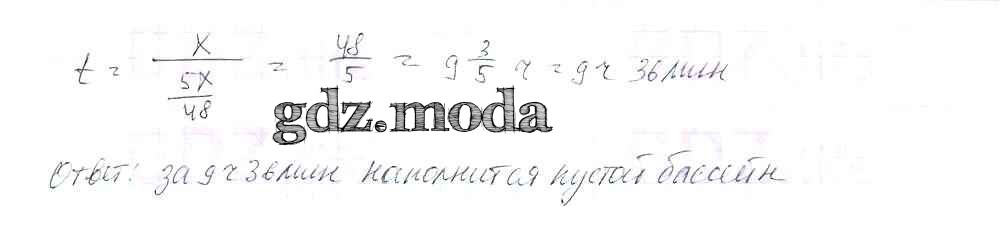 t = x / (5x/48) = 48/5 = 9 3/5 ч = 9 ч 36 мин
gdz.moda
Ответ: за 9 ч 36 мин наполнится пустой бассейн